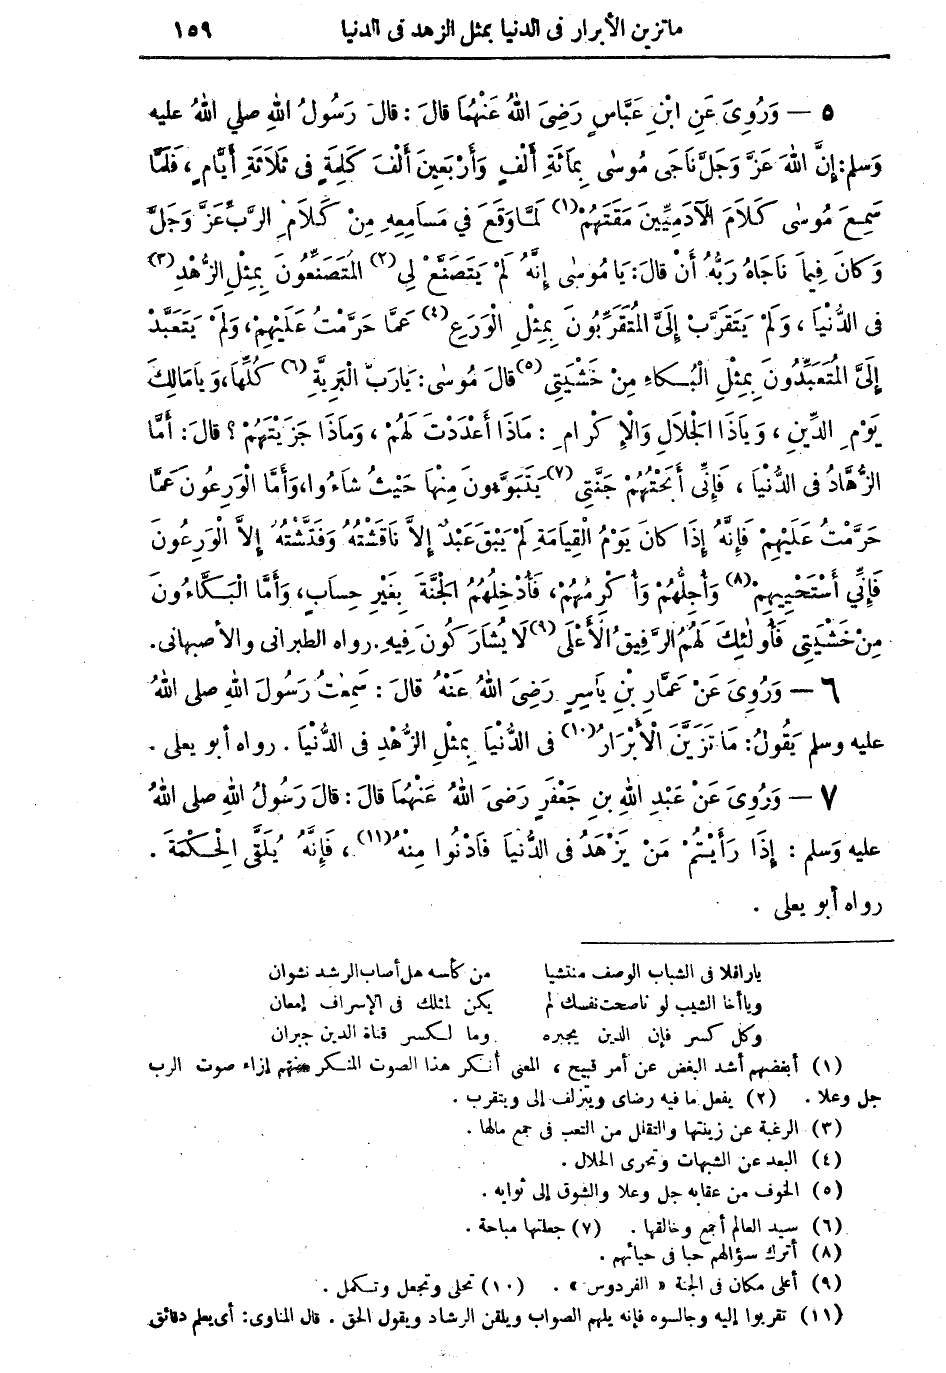 ماتزين الأبرار فى الدنيا بمثل الزهد فى الدنيا ١٥٩
٥ — وَرُوِىَ عَنِ ابْنِ عَبَّاسٍ رَضِىَ اللهُ عَنْهُمَا قالَ : قالَ رَسُولُ اللهِ صلي اللهُ عليه
وَسلم: إِنَّ اللهَ عَزَّ وَجَلَّ نَاجَى مُوسٰى بِمائَةِ أَلْفٍ وَأَرْبَعِينَ أَلْفَ كَلِمَةٍ فى ثَلاَثَةِ أَيَّامٍ ، فَلَمَّا
سَمِعَ مُوسٰى كَلاَمَ الآدَمِيِّينَ مَقَتَهُمْ(١) لَمَّا وَقَعَ فِي مَسَامِعِهِ مِنْ كَلاَمِ الرَّبِّ عَزَّ وَجَلَّ
وَكَانَ فِيمَا نَاجَاهُ رَبُّهُ أَنْ قالَ: يَا مُوسٰى إِنَّهُ لَمْ يَتَصَنَّعْ لِي(٢) الْمُتَصَنِّعُونَ بِمِثْلِ الزُّهْدِ(٣)
فى الدُّنْيَا ، وَلَمْ يَتَقَرَّبْ إِلَىَّ الْمُتَقَرِّبُونَ بِمِثْلِ الْوَرَعِ(٤) عَمَّا حَرَّمْتُ عَلَيْهِمْ، وَلَمْ يَتَعَبَّدْ
إِلَىَّ الْمُتَعَبِّدُونَ بِمِثْلِ الْبُكاءِ مِنْ خَشْيَتِى(٥) قالَ مُوسٰى: يَارَبَّ الْبَرِيَّةِ(٦) كُلِّهَا، وَيَامَالِكَ
يَوْمِ الدِّينِ ، وَيَاذَا الْجَلاَلِ وَالإِكْرَامِ : مَاذَا أَعْدَدْتَ لَهُمْ ، وَمَاذَا جَزَيْتَهُمْ ؟ قالَ: أَمَّا
الزُّهَّادُ فى الدُّنْيَا ، فَإِنِّى أَبَحْتُهُمْ جَنَّتِى(٧) يَتَبَوَّءُونَ مِنْهَا حَيْثُ شَاءُوا، وَأَمَّا الْوَرِعُونَ عَمَّا
حَرَّمْتُ عَلَيْهِمْ فَإِنَّهُ إِذَا كانَ يَوْمُ الْقِيَامَةِ لَمْ يَبْقَ عَبْدٌ إِلاَّ نَاقَشْتُهُ وَفَتَّشْتُهُ إِلاَّ الْوَرِعُونَ
فَإِنِّي أَسْتَحْيِيهِمْ(٨) وَأُجِلُّهُمْ وَأُكْرِمُهُمْ، فَأُدْخِلُهُمُ الْجَنَّةَ بِغَيْرِ حِسَابٍ، وَأَمَّا الْبَكَّاءُونَ
مِنْ خَشْيَتِى فَأُولٰئِكَ لَهُمُ الرَّفِيقُ الْأَعْلَى(٩) لاَ يُشَارَكُونَ فِيهِ. رواه الطبرانى والأصبهانى.
٦ — وَرُوِىَ عَنْ عَمَّارِ بْنِ يَاسِرٍ رَضِىَ اللهُ عَنْهُ قالَ : سَمِعْتُ رَسُولَ اللهِ صلى اللهُ
عليه وسلم يَقُولُ: مَا تَزَيَّنَ الْأَبْرَارُ(١٠) فى الدُّنْيَا بِمِثْلِ الزُّهْدِ فى الدُّنْيَا . رواه أبو يعلى .
٧ — وَرُوِىَ عَنْ عَبْدِ اللهِ بنِ جَعْفَرٍ رَضىَ اللهُ عَنْهُمَا قالَ : قالَ رَسُولُ اللهِ صلى اللهُ
عليه وَسلم : إِذَا رَأَيْتُمْ مَنْ يَزْهَدُ فى الدُّنْيَا فَادْنُوا مِنْهُ(١١) ، فَإِنَّهُ يُلَقَّى الْحِكْمَةَ .
رواه أبو يعلى .
يارافلا فى الشباب الوصف منتشيا من كأسه هل أصاب الرشد نشوان
وياأخا الشيب لو ناصحت نفسك لم يكن لمثلك فى الإسراف إمعان
وكل كسر فإن الدين يجبره وما لكسر قناة الدين جبران
(١) أبغضهم أشد البغض عن أمر قبيح ، المعنى أنكر هذا الصوت المنكر منهم إزاء صوت الرب
جل وعلا . (٢) يفعل ما فيه رضاى ويتزلف إلى ويتقرب .
(٣) الرغبة عن زينتها والتقلل من التعب فى جمع مالها .
(٤) البعد عن الشبهات وتحرى الحلال .
(٥) الخوف من عقابه جل وعلا والشوق إلى ثوابه .
(٦) سيد العالم أجمع وخالقها . (٧) جعلتها مباحة .
(٨) أترك سؤالهم حبا فى حيائهم .
(٩) أعلى مكان فى الجنة « الفردوس » . (١٠) تحلى وتجمل وتكمل .
(١١) تقربوا إليه وجالسوه فإنه يلهم الصواب ويلقن الرشاد ويقول الحق . قال المناوى: أى يعلم دقائق